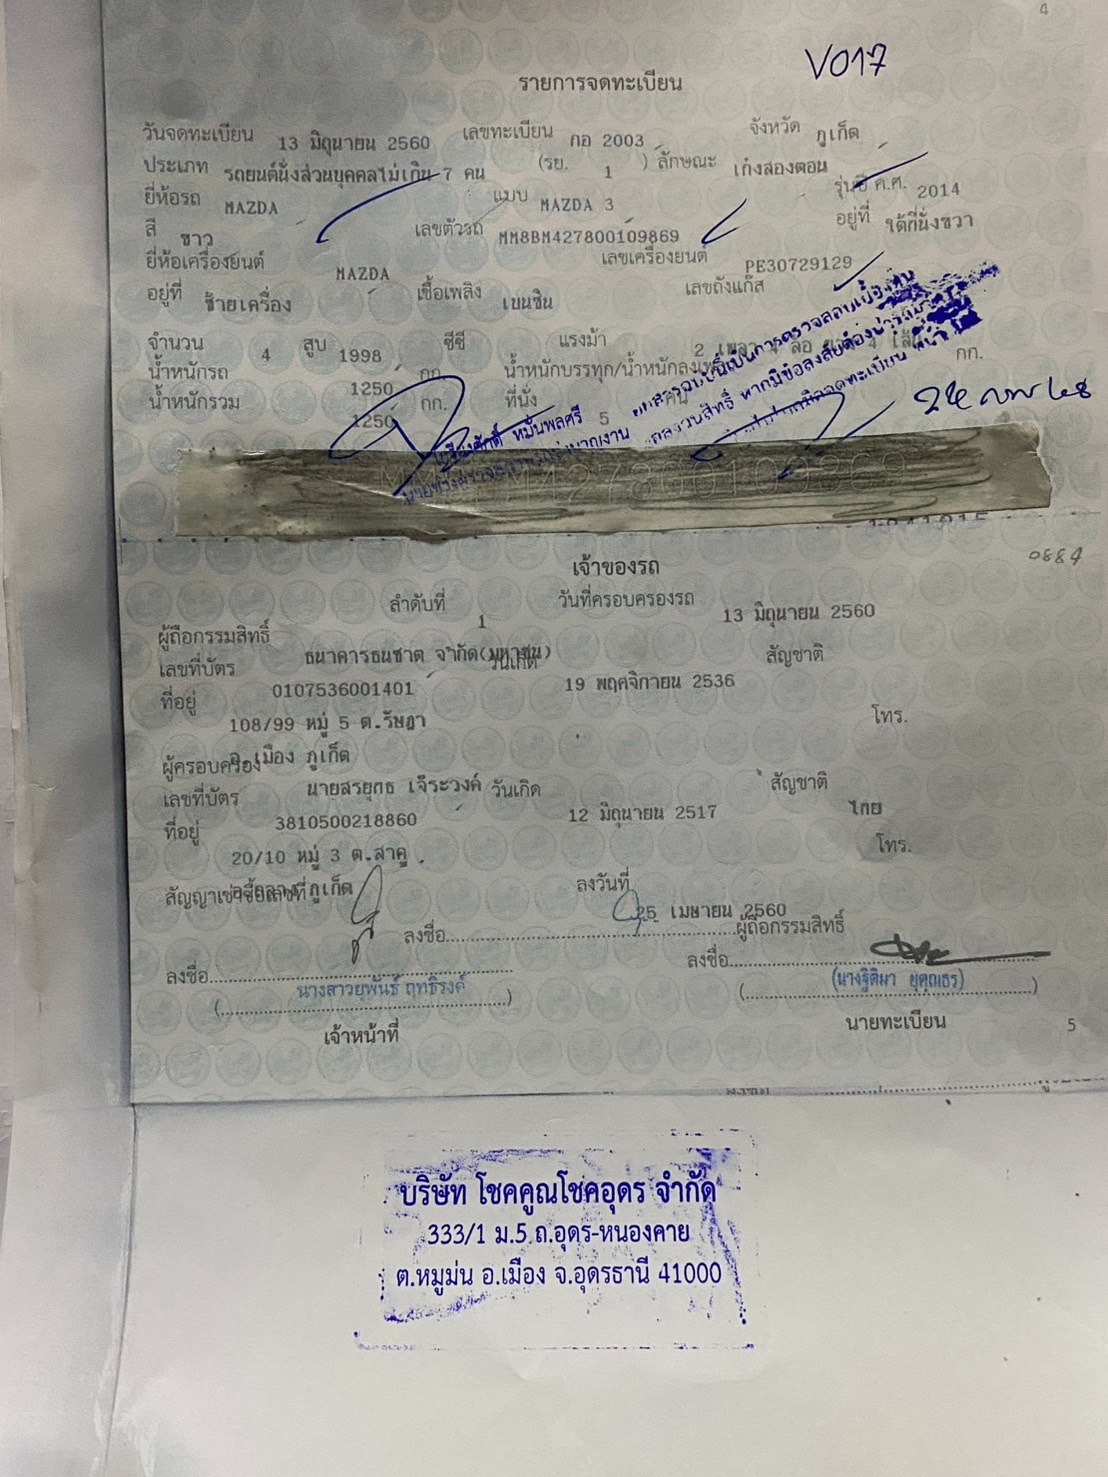 4
V017
รายการจดทะเบียน
วันจดทะเบียน 13 มิถุนายน 2560 เลขทะเบียน กอ 2003 จังหวัด ภูเก็ต
ประเภท รถยนต์นั่งส่วนบุคคลไม่เกิน 7 คน (รย. 1 ) ลักษณะ เก๋งสองตอน
ยี่ห้อรถ MAZDA แบบ MAZDA 3 รุ่นปี ค.ศ. 2014
สี ขาว เลขตัวรถ MM8BM427800109869 อยู่ที่ ใต้ที่นั่งขวา
ยี่ห้อเครื่องยนต์ MAZDA เลขเครื่องยนต์ PE30729129
อยู่ที่ ซ้ายเครื่อง เชื้อเพลิง เบนซิน เลขถังแก๊ส
จำนวน 4 สูบ 1998 ซีซี แรงม้า 2 เพลา 4 ล้อ
น้ำหนักรถ 1250 กก. น้ำหนักบรรทุก/น้ำหนักลงเพลา กก.
น้ำหนักรวม 1250 กก. ที่นั่ง 5 คน
หมั่นพลศรี
0884
เจ้าของรถ
ลำดับที่ 1 วันที่ครอบครองรถ 13 มิถุนายน 2560
ผู้ถือกรรมสิทธิ์ ธนาคารธนชาต จำกัด(มหาชน)
เลขที่บัตร 0107536001401 วันเกิด 19 พฤศจิกายน 2536 สัญชาติ
ที่อยู่ 108/99 หมู่ 5 ต.รัษฎา โทร.
อ.เมือง ภูเก็ต
ผู้ครอบครอง นายสรยุทธ เจ๊ะวงค์
เลขที่บัตร 3810500218860 วันเกิด 12 มิถุนายน 2517 สัญชาติ ไทย
ที่อยู่ 20/10 หมู่ 3 ต.สาคู โทร.
อ.ถลาง ภูเก็ต
สัญญาเช่าซื้อเลขที่ ลงวันที่ 25 เมษายน 2560
ลงชื่อ ผู้ถือกรรมสิทธิ์
ลงชื่อ ลงชื่อ
(นางสาวยุพันธ์ ฤทธิรงค์) (นางฐิติมา ยุคุณธร)
เจ้าหน้าที่ นายทะเบียน
5
บริษัท โชคคูณโชคอุดร จำกัด
333/1 ม.5 ถ.อุดร-หนองคาย
ต.หมูม่น อ.เมือง จ.อุดรธานี 41000